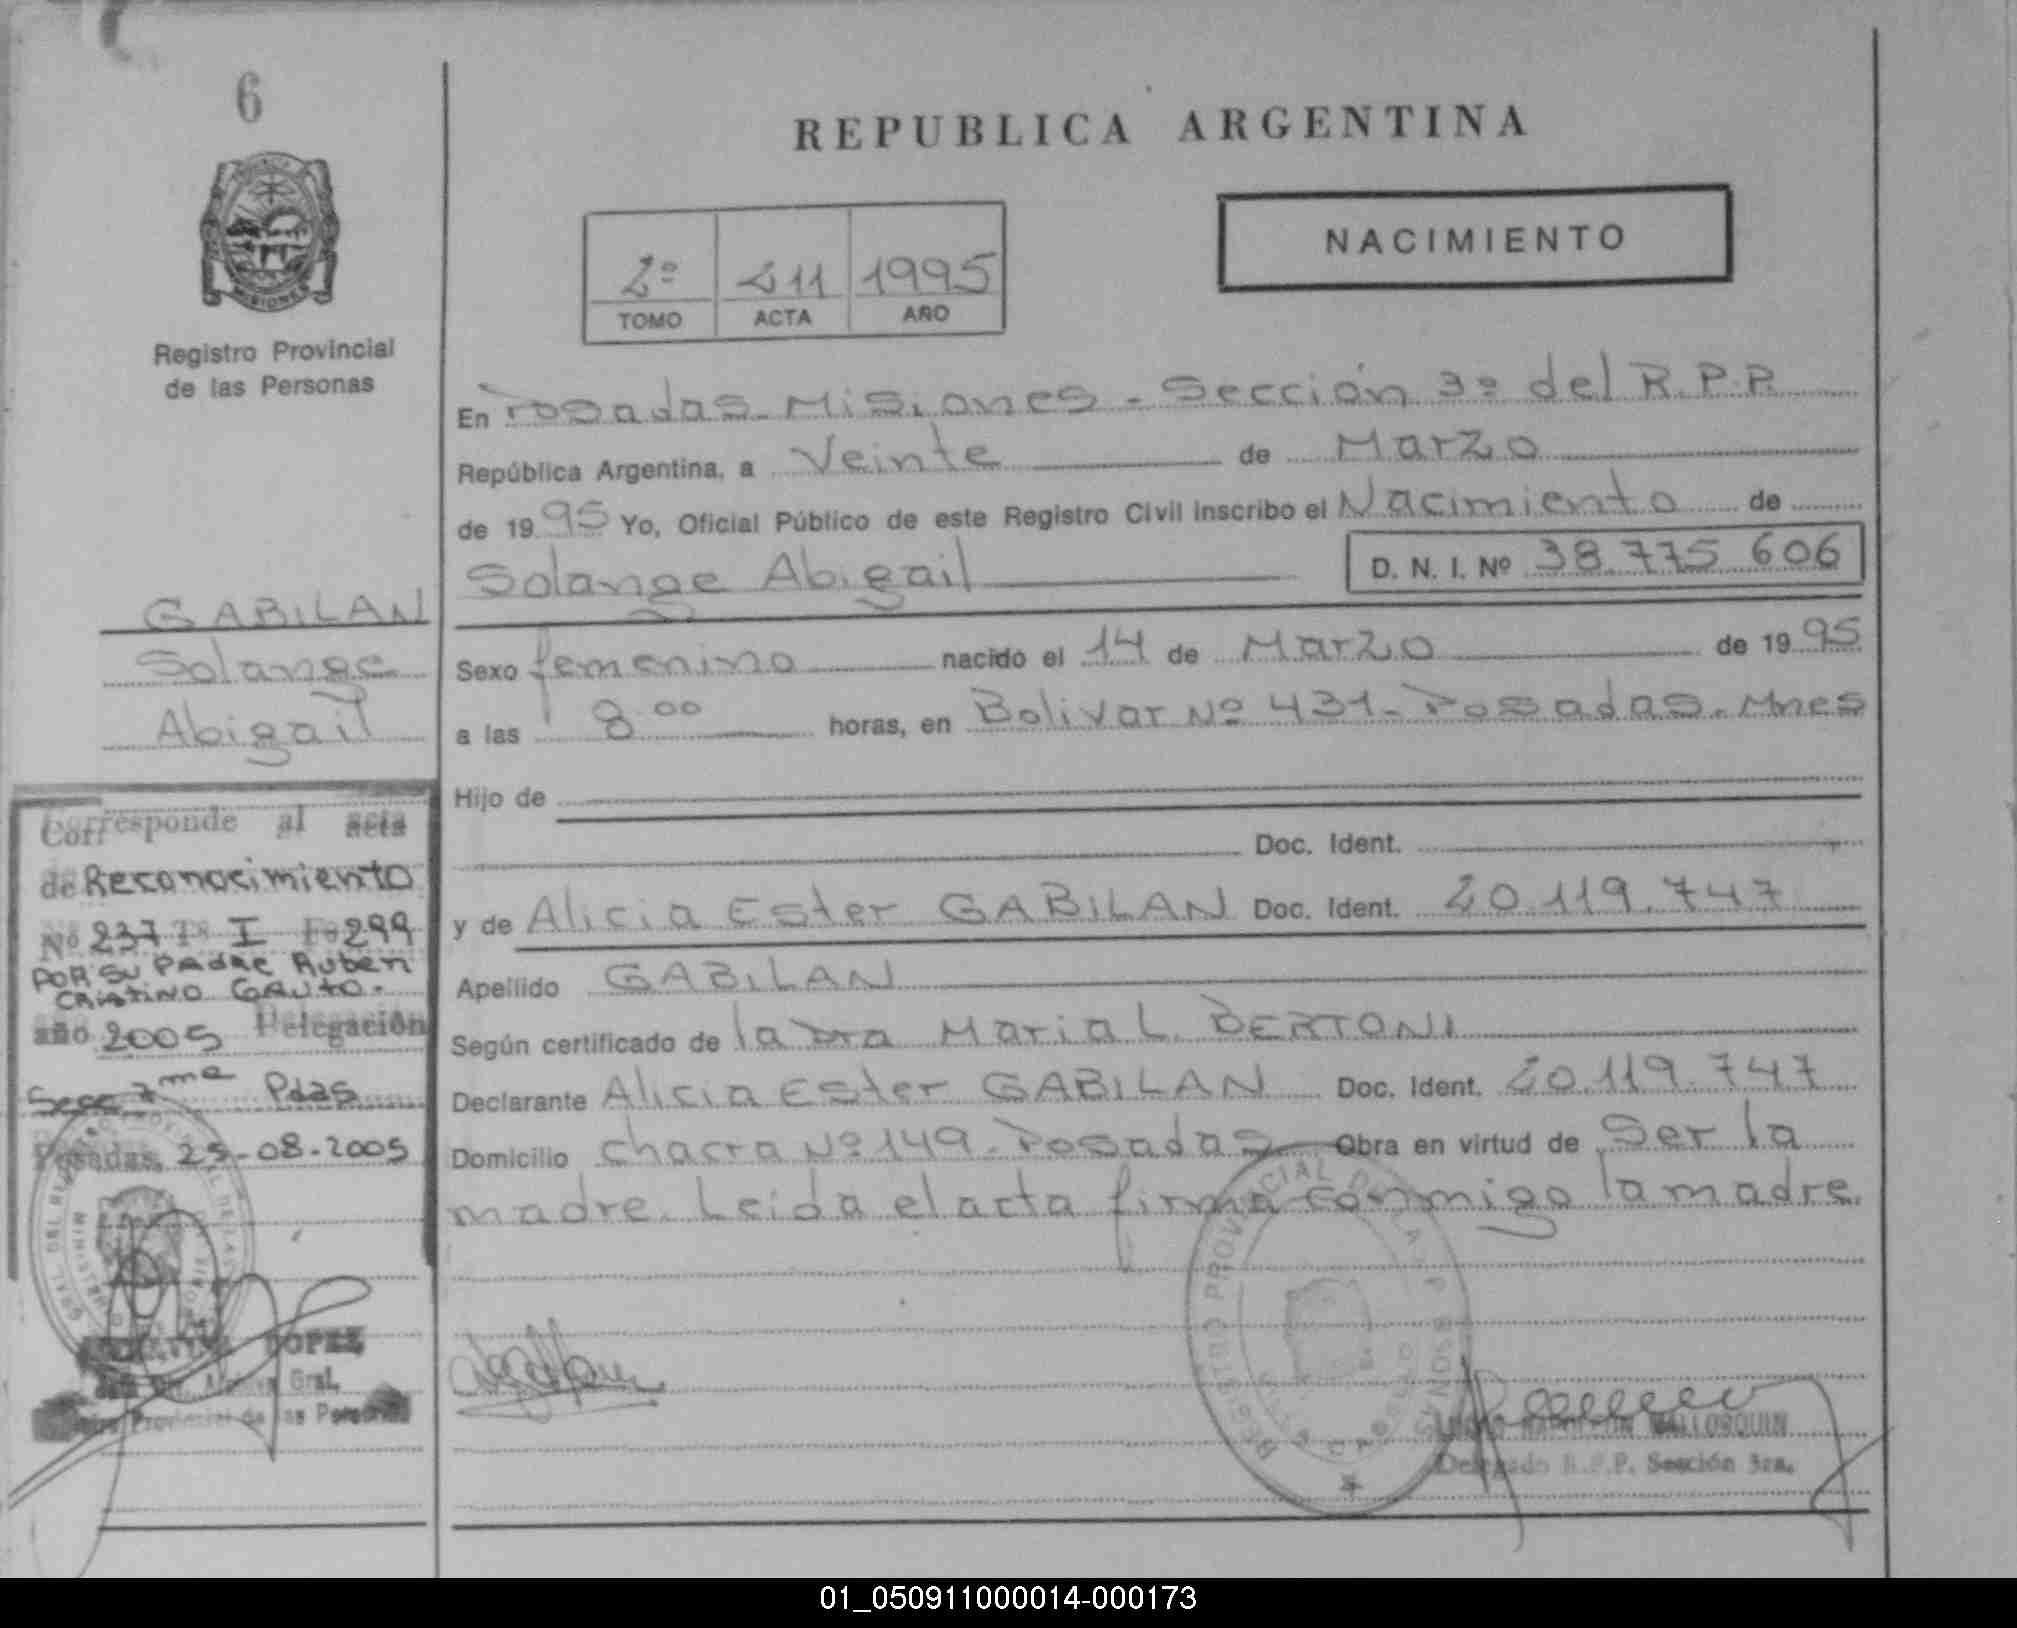 6
MISIONES
Registro Provincial
de las Personas
GABILAN
Solange
Abigail
Corresponde al acta
de Reconocimiento
Nº 237 Tº I Fº 299
POR SU PADRE Ruben
CRISTINO GAUTO.
año 2005 Delegación
Secc 7ma Pdas
Posadas, 25-08-2005
LOPEZ
Gral.
Provincial de las Personas
REPUBLICA ARGENTINA
NACIMIENTO
2º 411 1995
TOMO ACTA AÑO
En Posadas-Misiones-Sección 3º del R.P.P.
República Argentina, a Veinte de Marzo
de 1995 Yo, Oficial Público de este Registro Civil inscribo el Nacimiento de
Solange Abigail D. N. I. Nº 38.775.606
Sexo femenino nacido el 14 de Marzo de 1995
a las 8.00 horas, en Bolivar Nº 431-Posadas-Mnes
Hijo de
Doc. Ident.
y de Alicia Ester GABILAN Doc. Ident. 20.119.747
Apellido GABILAN
Según certificado de la Dra Maria L. BERTONI
Declarante Alicia Ester GABILAN Doc. Ident. 20.119.747
Domicilio chacra Nº 149-Posadas Obra en virtud de Ser la
madre. Leida el acta firma conmigo la madre.
REGISTRO PROVINCIAL DE LAS PERSONAS
MALLORQUIN
Delegado R.P.P. Sección 3ra.
01_050911000014-000173